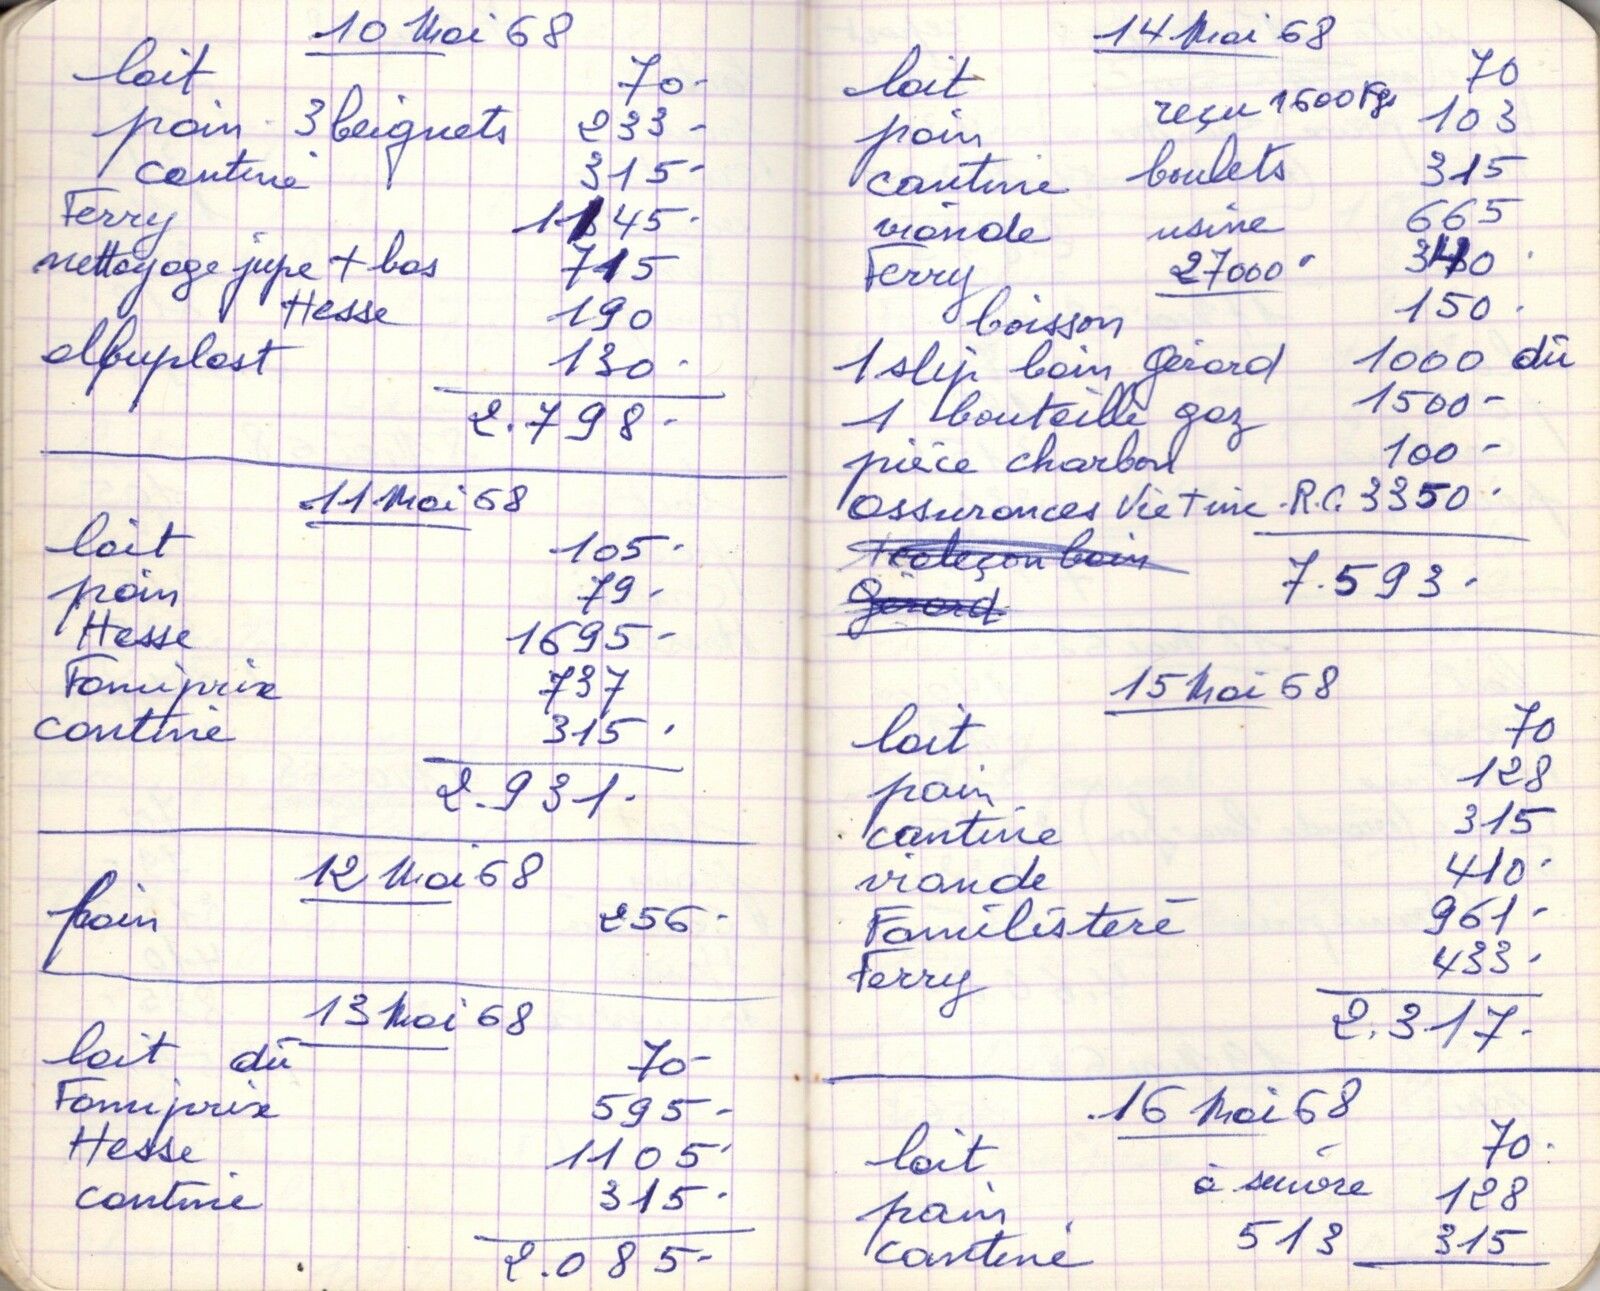 10 Mai 68
lait 70-
pain 3 beignets 233-
cantine 315-
Ferry 1145-
nettoyage jupe + bas 715
Hesse 190
albuplast 130-
2.798-
11 Mai 68
lait 105-
pain 79-
Hesse 1695-
Famiprix 737
cantine 315-
2.931-
12 Mai 68
pain 256-
13 Mai 68
lait dû 70-
Famiprix 595-
Hesse 1105-
cantine 315-
2.085-
14 Mai 68
lait 70
pain reçu 1600 Kgs 103
cantine boulets 315
viande usine 665
Ferry 27000- 340-
boisson 150-
1 slip bain Gérard 1000 dû
1 bouteille gaz 1500-
pièce charbon 100-
assurances Vie + inc. R.C. 3350-
1 caleçon bain
Gérard
7.593-
15 Mai 68
lait 70
pain 128
cantine 315
viande 410-
Familistère 961-
Ferry 433-
2.317-
16 Mai 68
lait 70-
pain à suivre 128
cantine 513 315